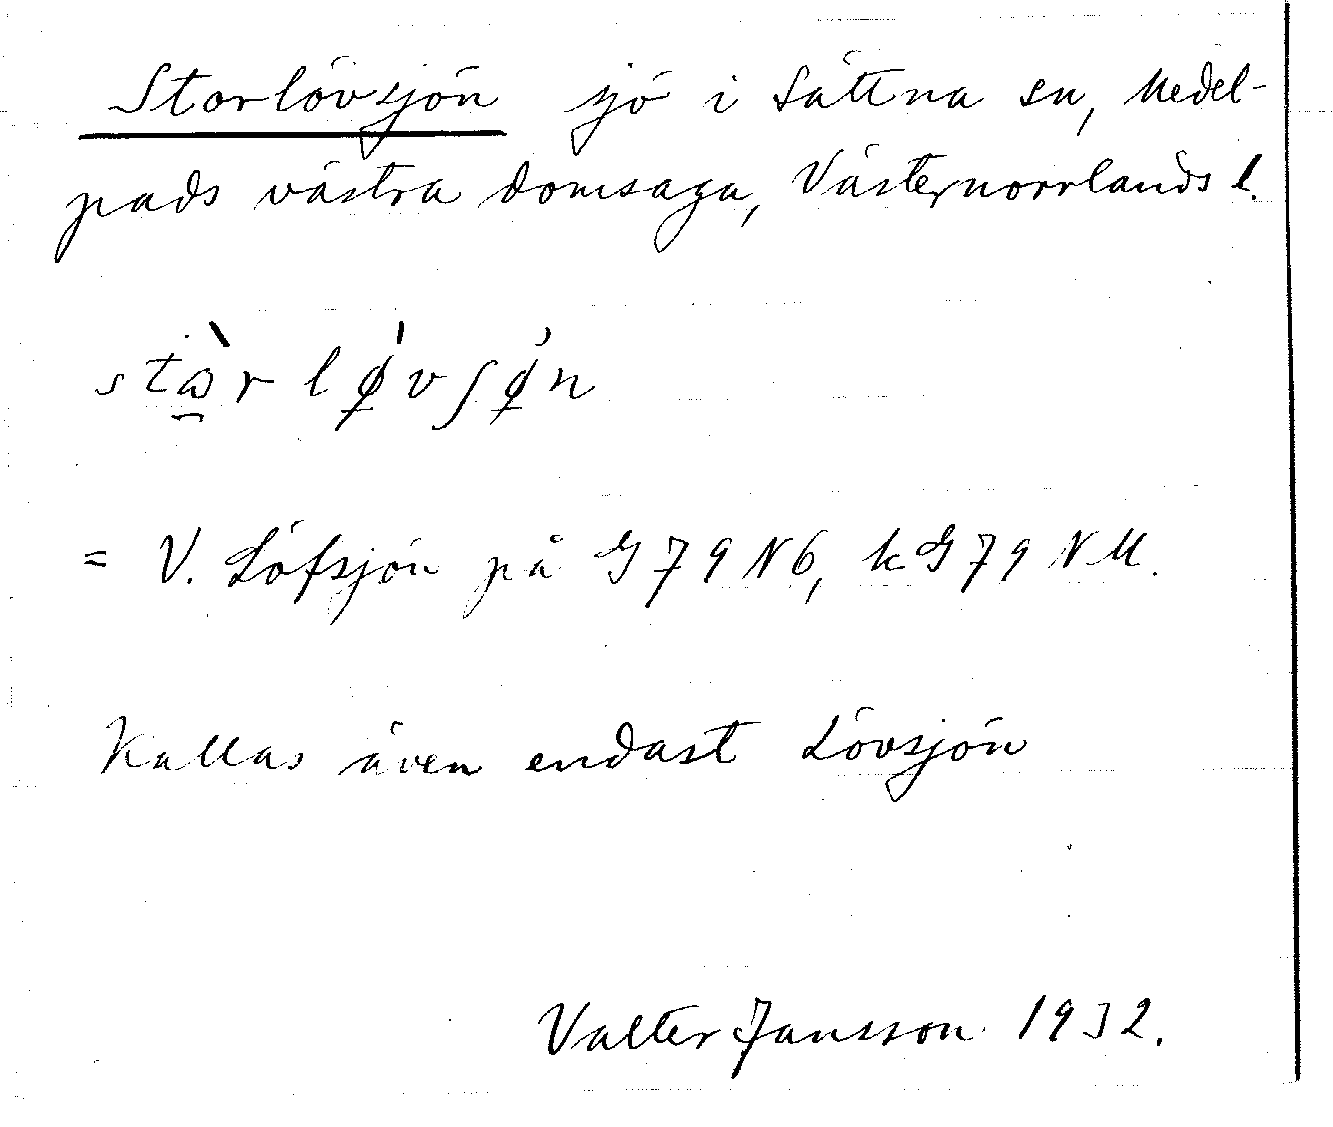 Storlövsjön sjö i Sättna sn, Medel-
pads västra domsaga, Västernorrlands l.
stɷ̀r lø̍vʃøn
= V. Löfsjön på G 79 N6, kG 79 NM.
Kallas även endast Lövsjön
Valter Jansson 1932.